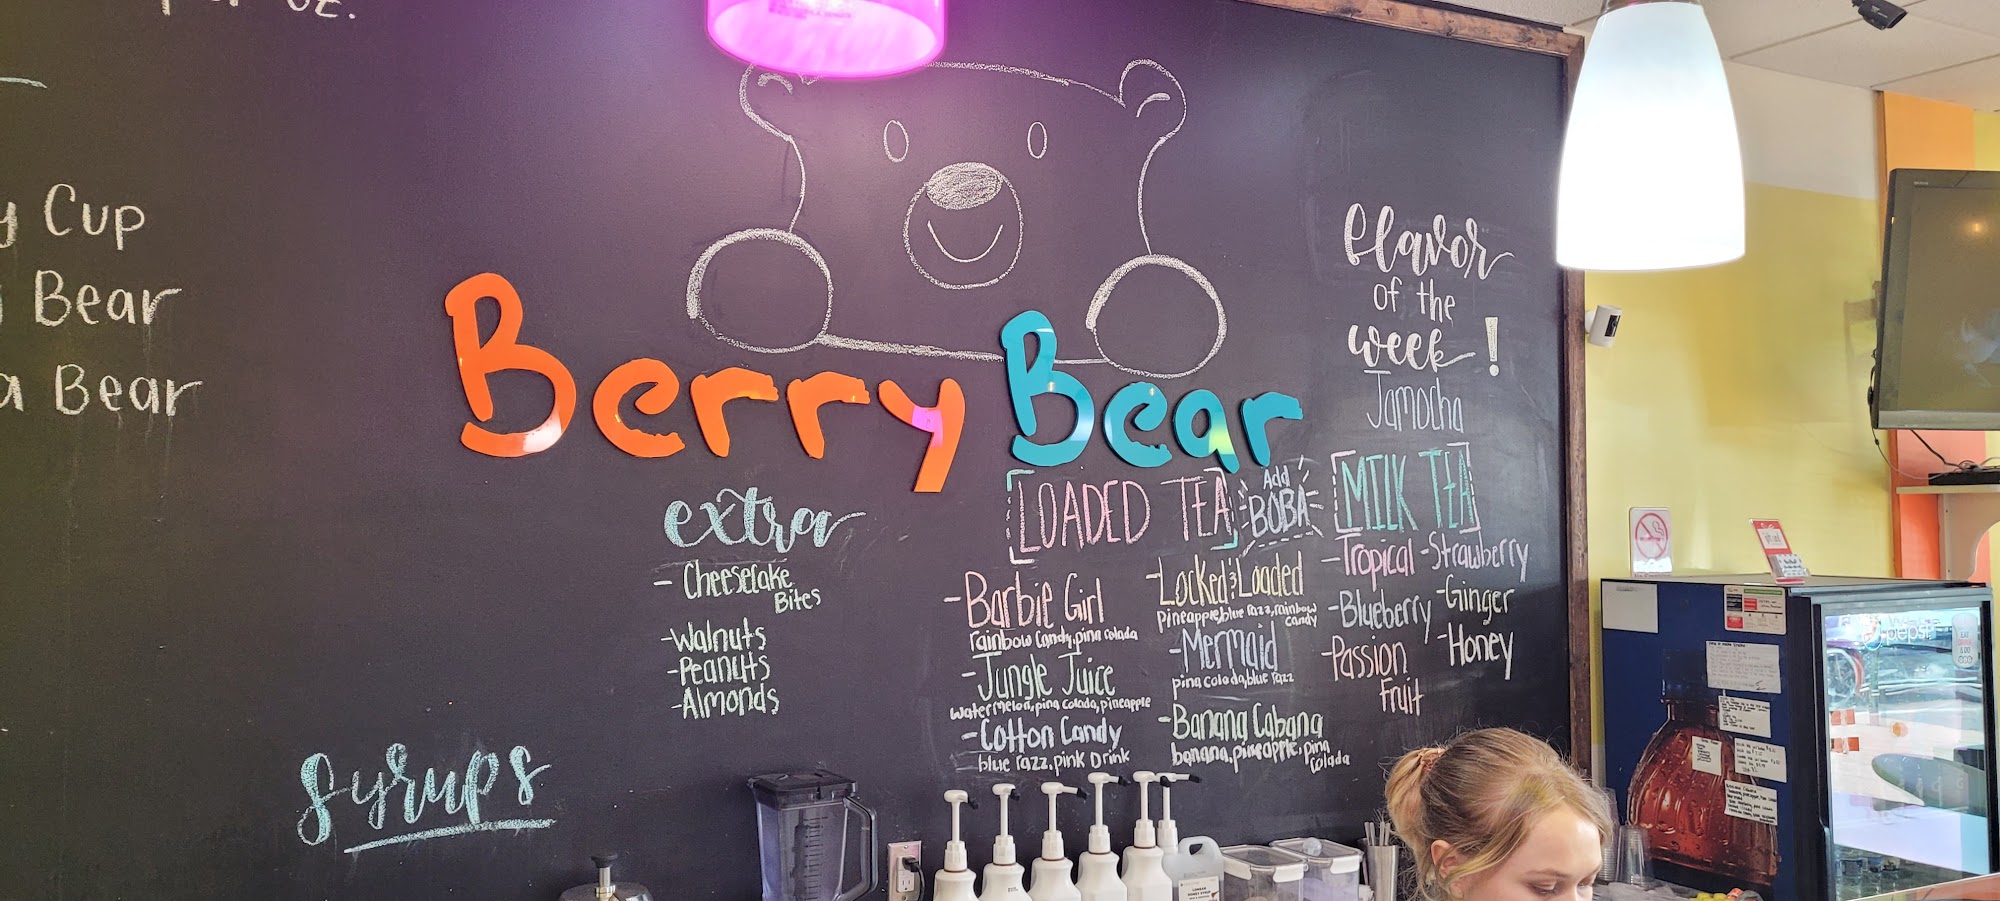 Cup
Bear
a Bear
Berry Bear
extra
- Cheesecake
Bites
- Walnuts
- Peanuts
- Almonds
Syrups
LOADED TEA
Add
BOBA
- Barbie Girl
rainbow candy, pina colada
- Jungle Juice
watermelon, pina colada, pineapple
- Cotton Candy
blue razz, pink Drink
- Locked & Loaded
pineapple, blue razz, rainbow
candy
- Mermaid
pina colada, blue razz
- Banana Cabana
banana, pineapple, pina
colada
Flavor
of the
week!
Jamocha
MILK TEA
- Tropical
- Blueberry
- Passion
Fruit
- Strawberry
- Ginger
- Honey
pepsi